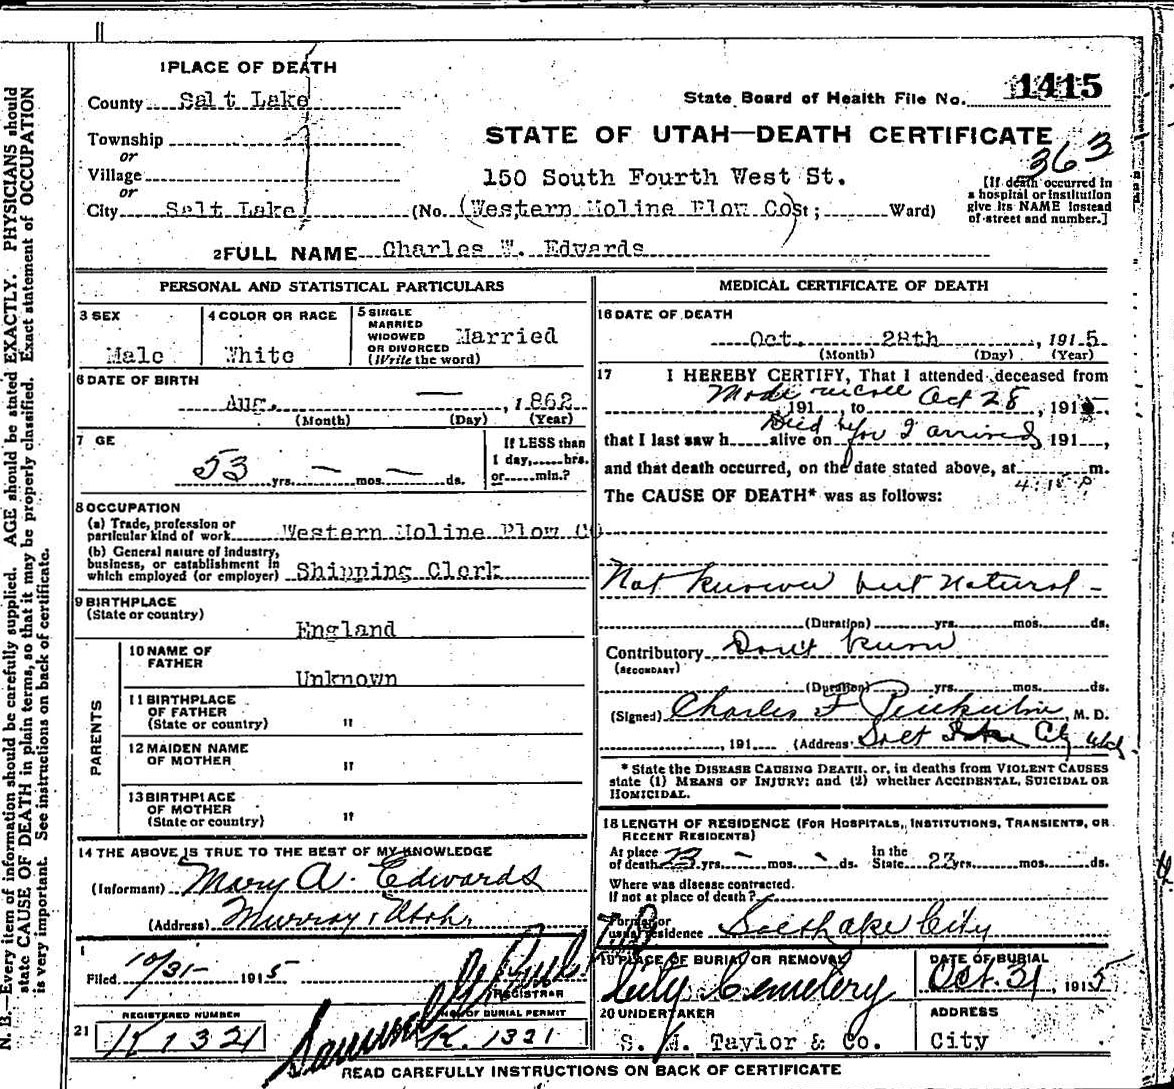 N. B.—Every item of information should be carefully supplied. AGE should be stated EXACTLY. PHYSICIANS should
state CAUSE OF DEATH in plain terms, so that it may be properly classified. Exact statement of OCCUPATION
is very important. See instructions on back of certificate.
1 PLACE OF DEATH
County Salt Lake
State Board of Health File No. 1415
Township
or
STATE OF UTAH—DEATH CERTIFICATE
363
Village
or
150 South Fourth West St.
[If death occurred in
a hospital or institution
give its NAME instead
of street and number.]
City Salt Lake (No. (Western Moline Plow Co) St; Ward)
2 FULL NAME Charles W. Edwards
PERSONAL AND STATISTICAL PARTICULARS
3 SEX
Male
4 COLOR OR RACE
White
5 SINGLE
MARRIED
WIDOWED
OR DIVORCED
(Write the word)
Married
6 DATE OF BIRTH
Aug. — , 1862
(Month) (Day) (Year)
7 GE
53 yrs. — mos. — ds.
If LESS than
1 day, hrs.
or min.?
8 OCCUPATION
(a) Trade, profession or
particular kind of work Western Moline Plow Co
(b) General nature of industry,
business, or establishment in
which employed (or employer) Shipping Clerk
9 BIRTHPLACE
(State or country)
England
PARENTS
10 NAME OF
FATHER
Unknown
11 BIRTHPLACE
OF FATHER
(State or country) "
12 MAIDEN NAME
OF MOTHER "
13 BIRTHPLACE
OF MOTHER
(State or country) "
14 THE ABOVE IS TRUE TO THE BEST OF MY KNOWLEDGE
(Informant) Mary A. Edwards
(Address) Murray, Utah.
Filed 10/31- 1915
REGISTRAR
REGISTERED NUMBER
NO. OF BURIAL PERMIT
21 K 1321
K. 1321
MEDICAL CERTIFICATE OF DEATH
16 DATE OF DEATH
Oct. 28th , 1915
(Month) (Day) (Year)
17 I HEREBY CERTIFY, That I attended deceased from
Oct 28
191 to , 191
Died before I arrived
that I last saw h alive on 191 ,
and that death occurred, on the date stated above, at m.
4:15 P
The CAUSE OF DEATH* was as follows:
Not Known but Natural -
(Duration) yrs. mos. ds.
Contributory Don't Know
(SECONDARY)
(Duration) yrs. mos. ds.
(Signed) Charles F Pinkerton, M. D.
, 191 (Address Salt Lake City Utah.
* State the DISEASE CAUSING DEATH, or, in deaths from VIOLENT CAUSES
state (1) MEANS OF INJURY; and (2) whether ACCIDENTAL, SUICIDAL OR
HOMICIDAL.
18 LENGTH OF RESIDENCE (FOR HOSPITALS, INSTITUTIONS, TRANSIENTS, OR
RECENT RESIDENTS)
At place
of death 23 yrs. - mos. - ds.
In the
State 23 yrs. mos. ds.
Where was disease contracted.
If not at place of death?
Former or
usual residence Salt Lake City
19 PLACE OF BURIAL OR REMOVAL
City Cemetery
DATE OF BURIAL
Oct. 31, 1915
20 UNDERTAKER
S. M. Taylor & Co.
ADDRESS
City
READ CAREFULLY INSTRUCTIONS ON BACK OF CERTIFICATE